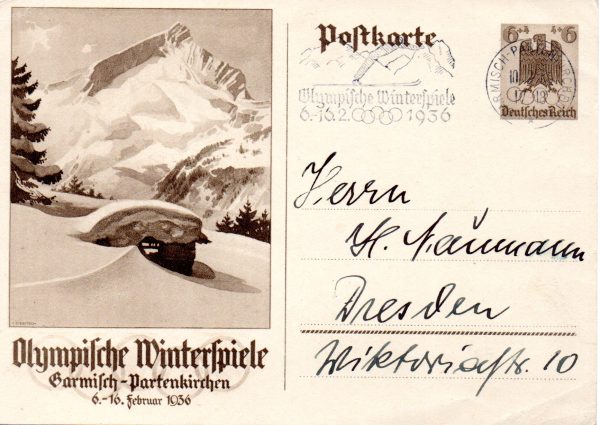 Olympische Winterspiele
Garmisch-Partenkirchen
6.-16. Februar 1936
Postkarte
Olympische Winterspiele
6.-16.2. 1936
6+4 4+6
Deutsches Reich
Herrn
H. Naumann
Dresden
Wiktoriastr. 10